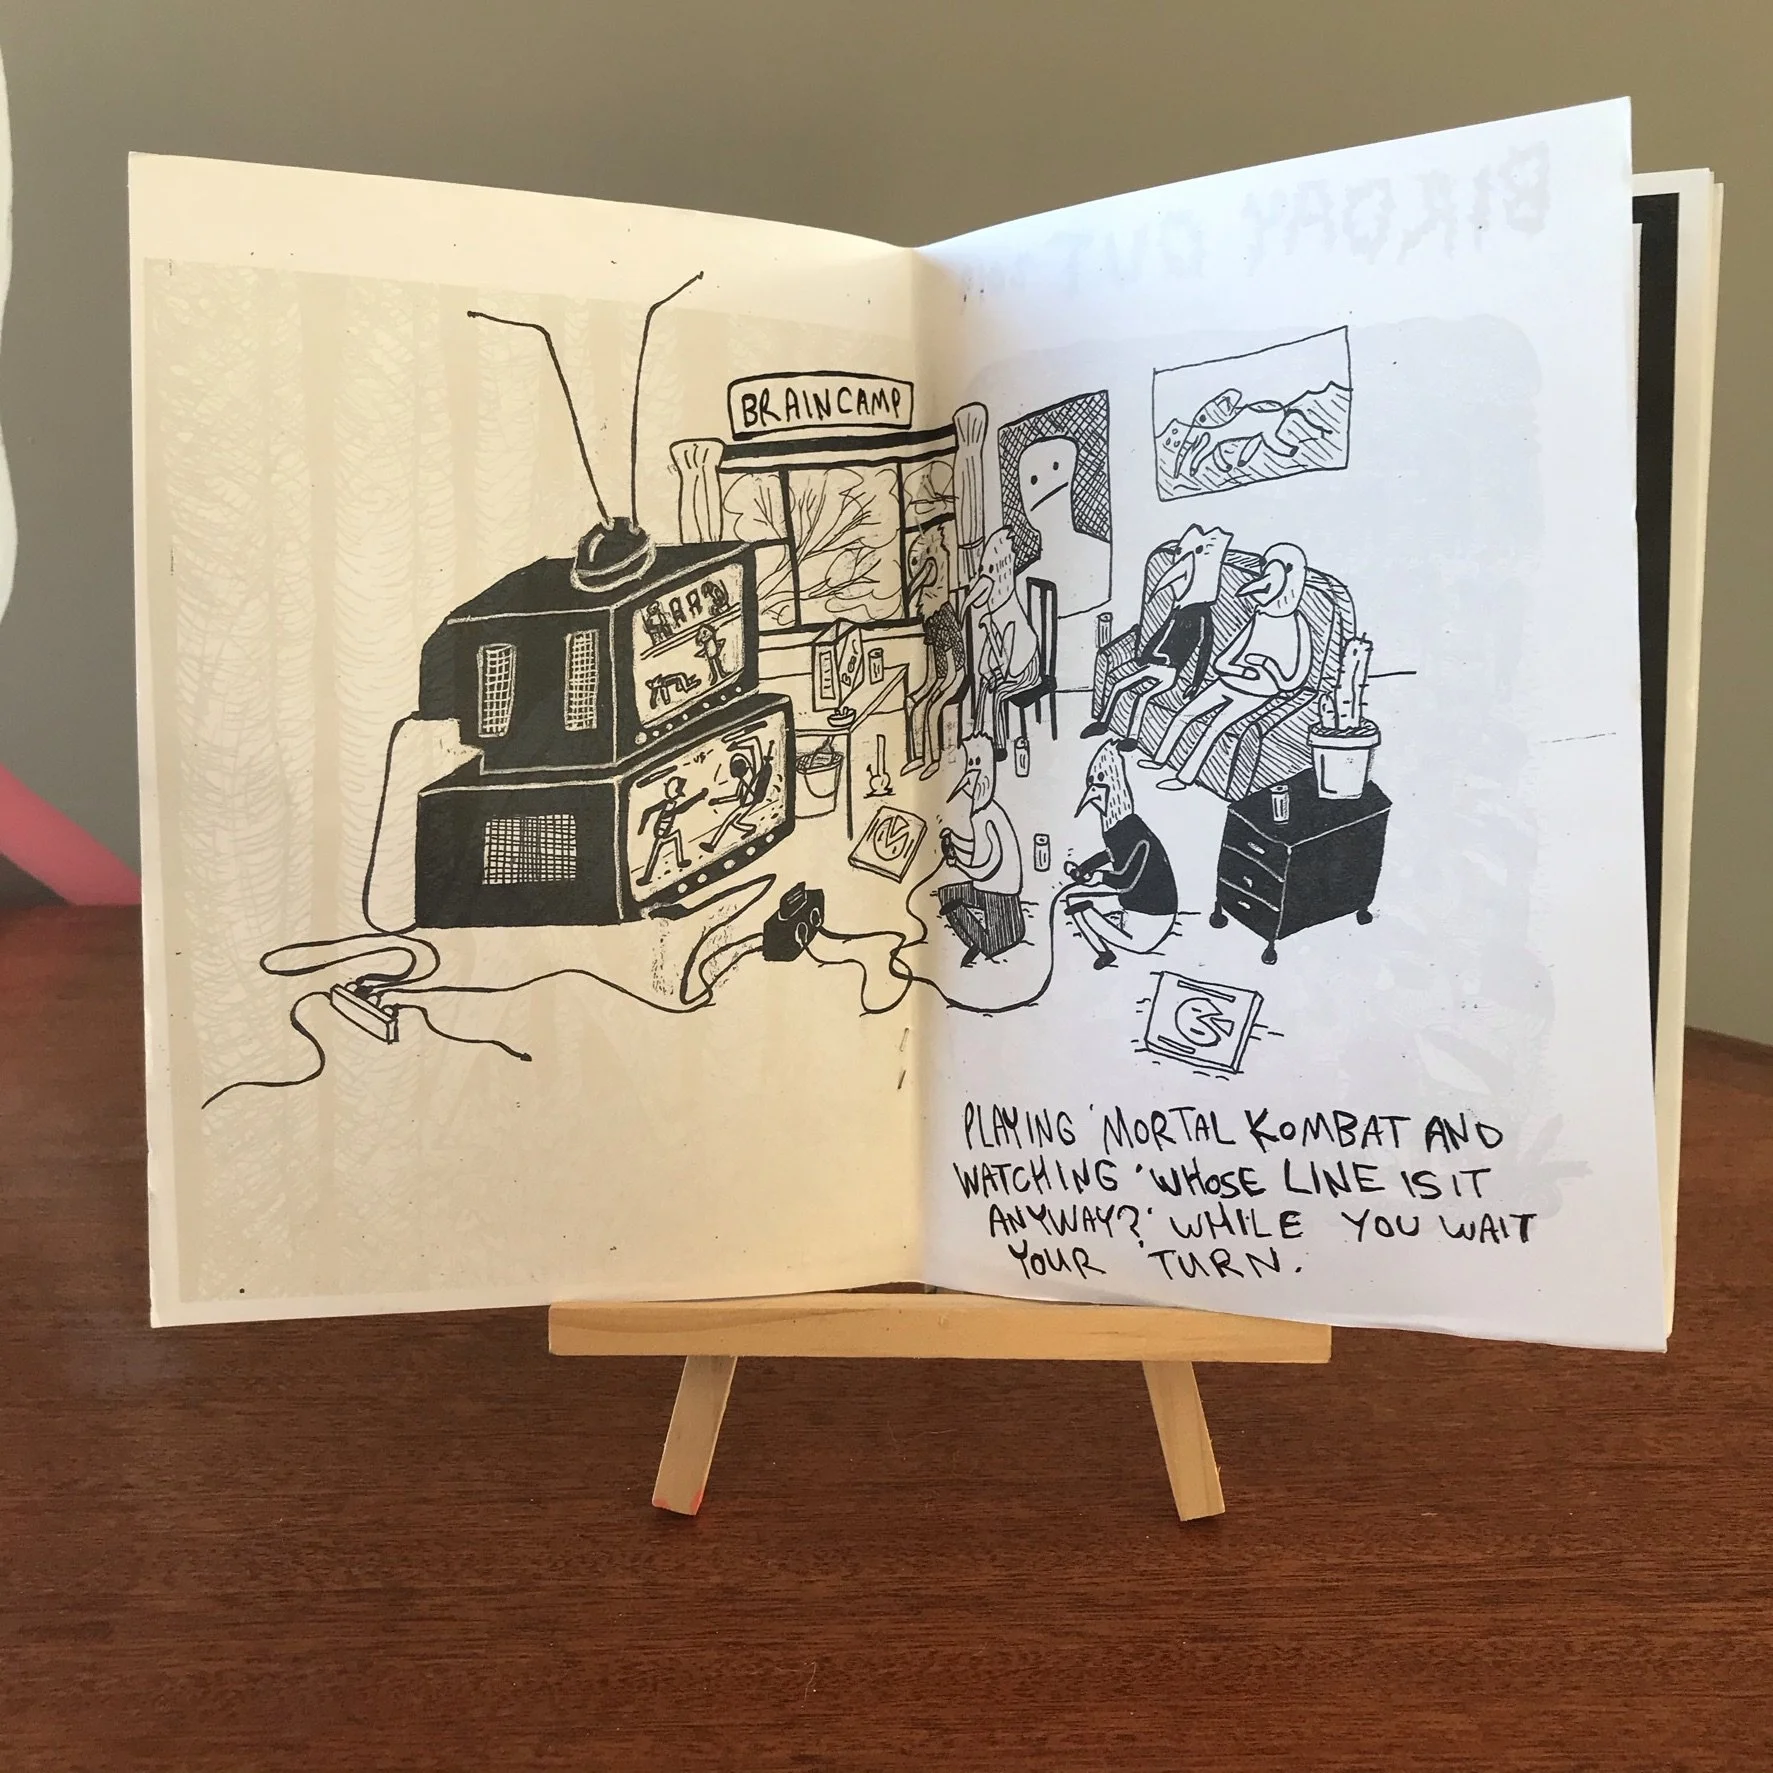 BRAINCAMP
PLAYING 'MORTAL KOMBAT AND
WATCHING 'WHOSE LINE IS IT
ANYWAY?' WHILE YOU WAIT
YOUR TURN.